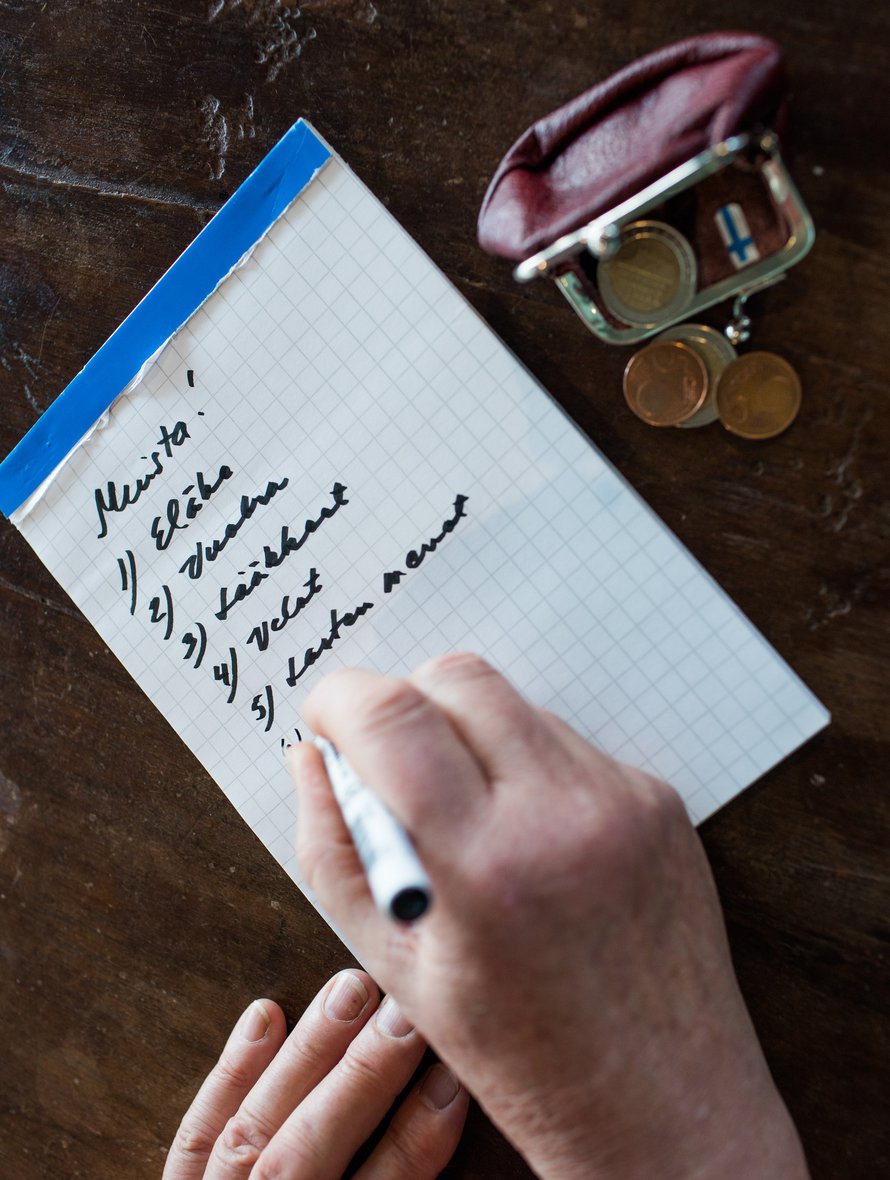 Muista!
1) Eläke
2) Vuokra
3) Lääkkeet
4) Velat
5) Lasten menot
6)